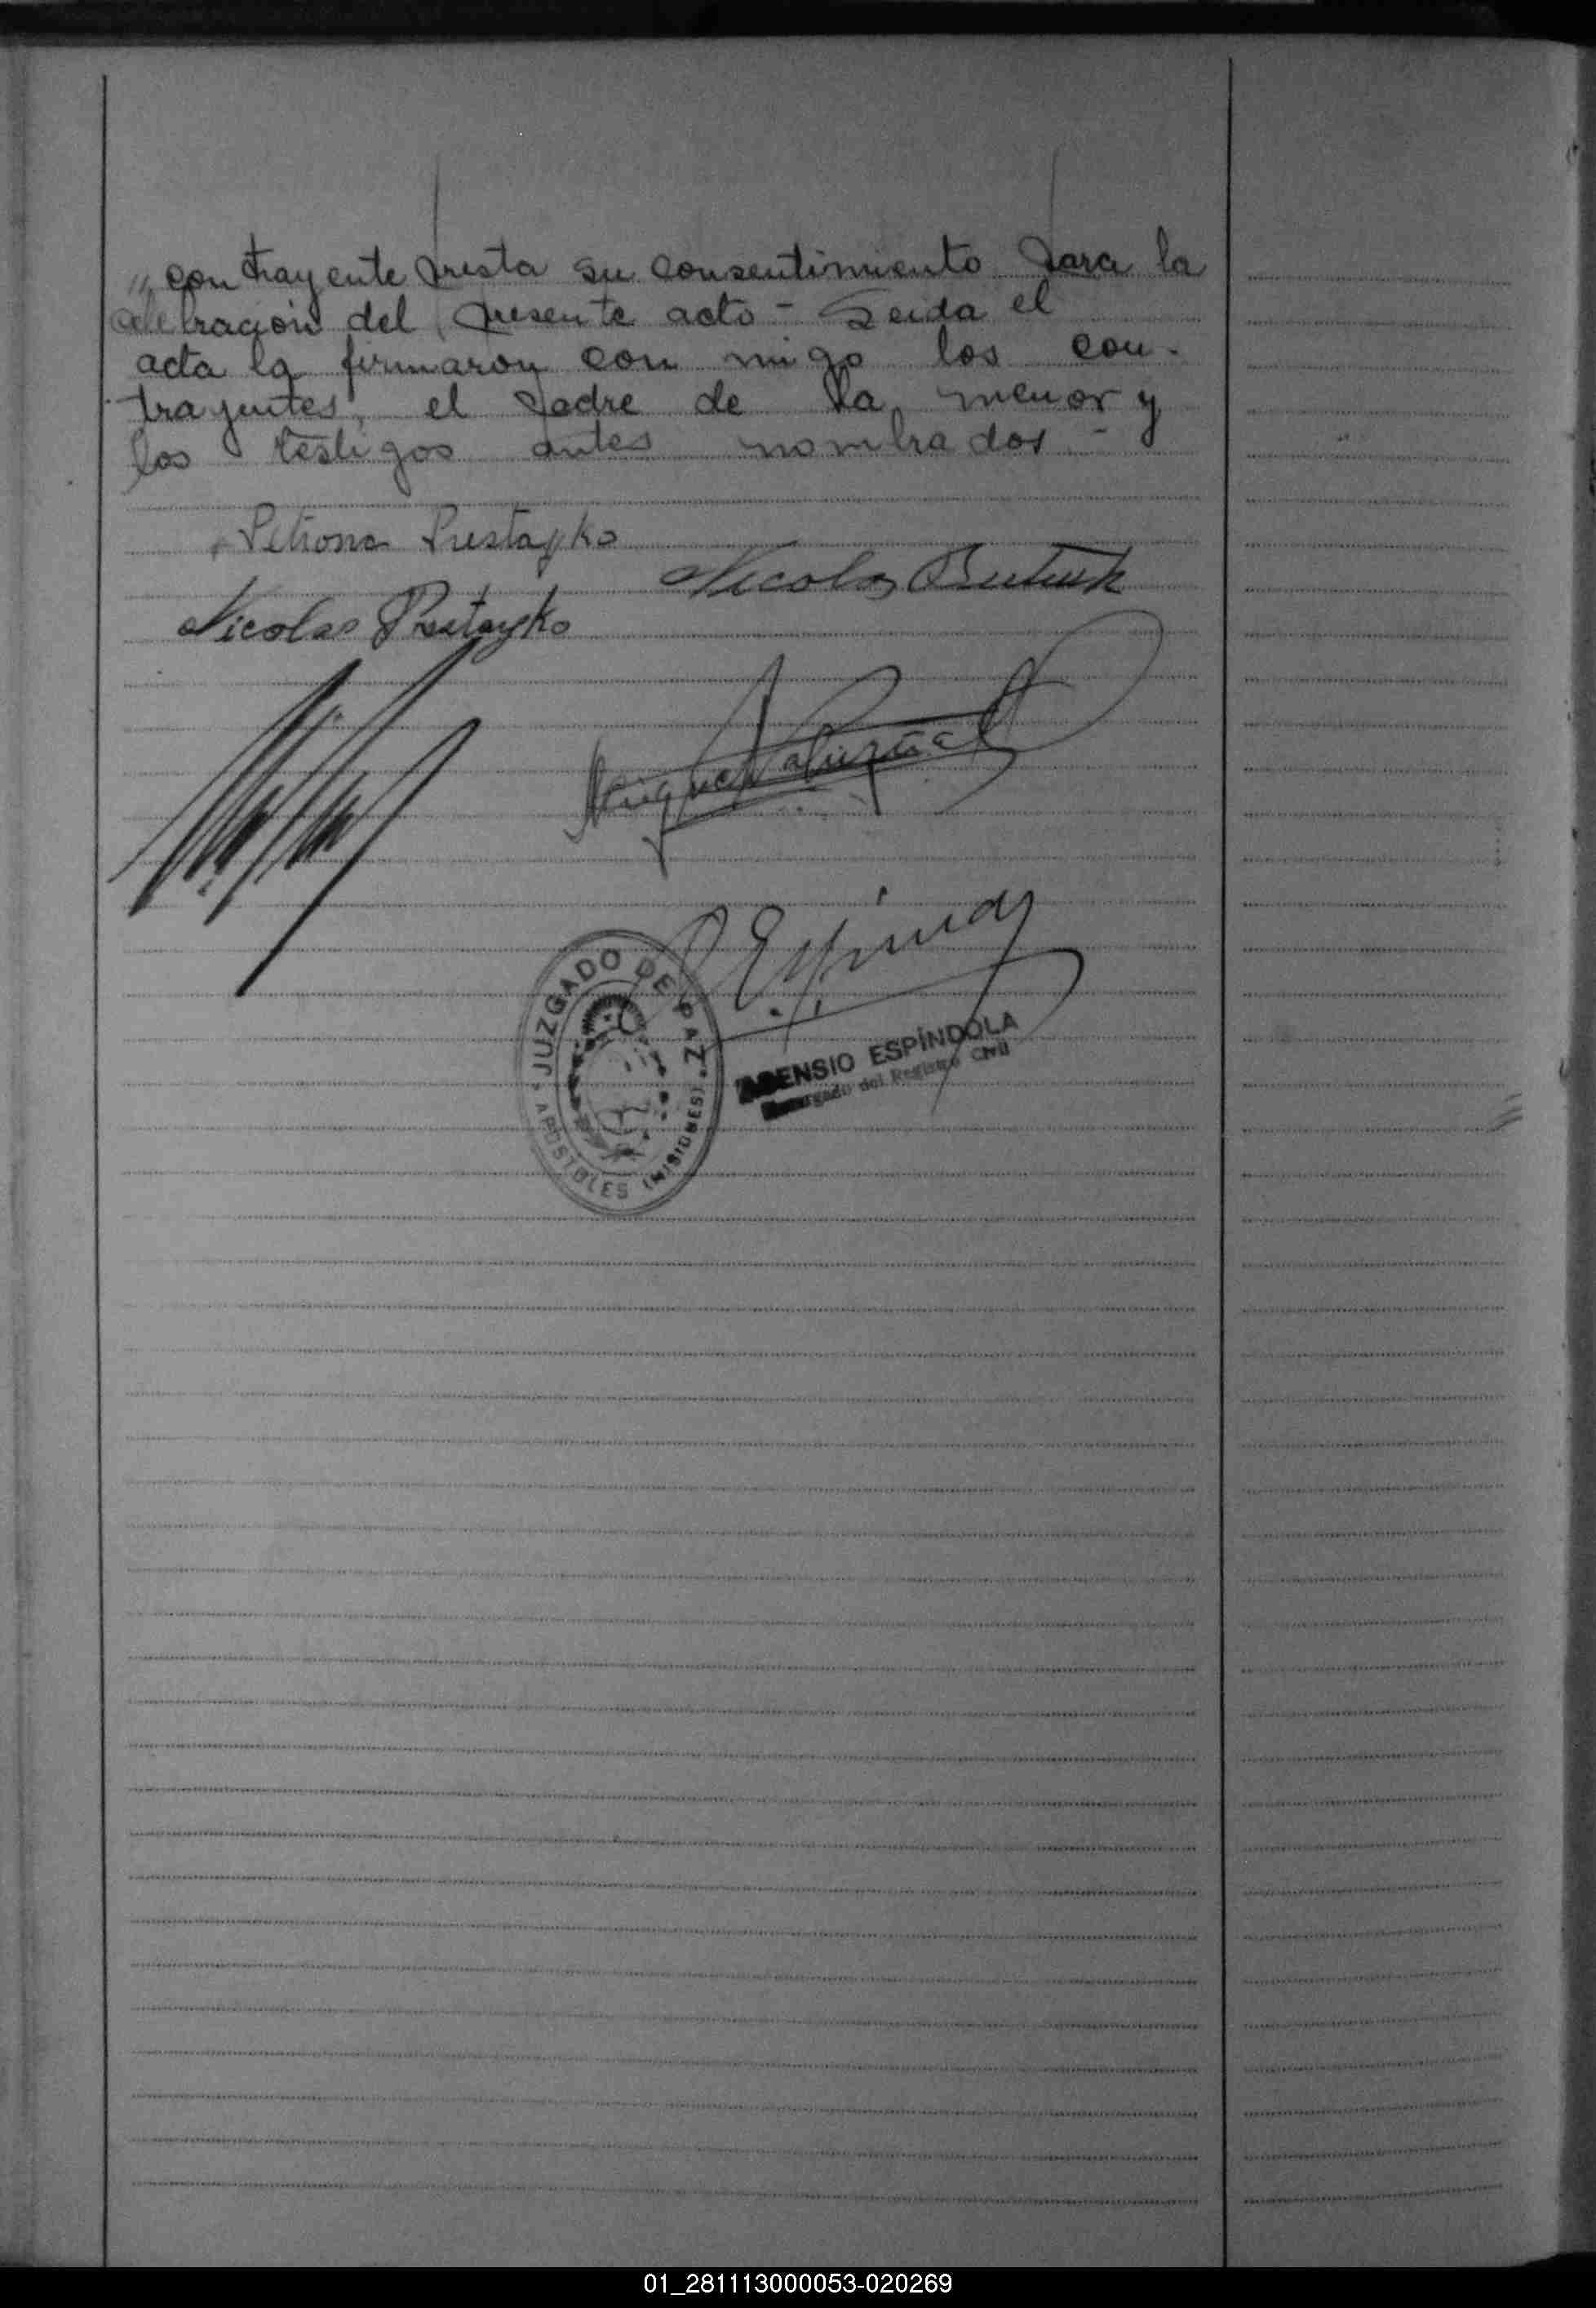 „ contrayente presta su consentimiento para la
celebración del presente acto - Leida el
acta la firmaron con migo los con-
trayentes, el padre de la menor y
los testigos antes nombrados -
Petrona Prestayko
Nicolas
Nicolas Prestayko
Miguel
Espíndola
JUZGADO DE PAZ
APÓSTOLES (MISIONES)
ASENSIO ESPÍNDOLA
Encargado del Registro Civil
01_281113000053-020269